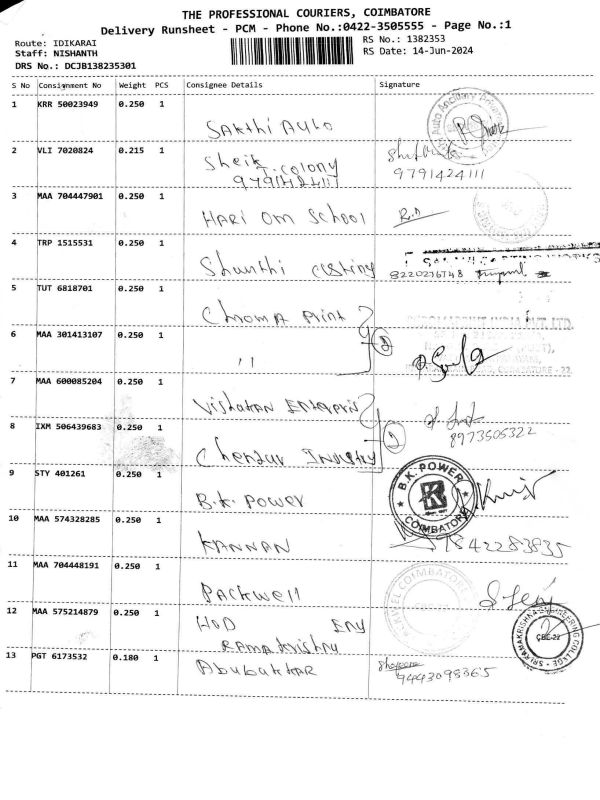 THE PROFESSIONAL COURIERS, COIMBATORE
Delivery Runsheet - PCM - Phone No.:0422-3505555 - Page No.:1
Route: IDIKARAI
Staff: NISHANTH
DRS No.: DCJB138235301
RS No.: 1382353
RS Date: 14-Jun-2024
S No Consignment No Weight PCS Consignee Details Signature
1 KRR 50023949 0.250 1 SAKthi AUto
2 VLI 7020824 0.215 1 Sheik
T.colony
9791424111
9791424111
3 MAA 704447901 0.250 1 HARI OM School
4 TRP 1515531 0.250 1 Shanthi casting
8220276748
5 TUT 6818701 0.250 1 Chroma Print
6 MAA 301413107 0.250 1 "
COIMBATORE - 22.
7 MAA 600085204 0.250 1
8 IXM 506439683 0.250 1 8973505322
9 STY 401261 0.250 1 B.K. POWER
B.K. POWER
COIMBATORE
10 MAA 574328285 0.250 1 KANNAN
9842283835
11 MAA 704448191 0.250 1 PACKWell
12 MAA 575214879 0.250 1 HOD
RAMAKrishna
SRI RAMAKRISHNA ENGINEERING COLLEGE
CBE-22
13 PGT 6173532 0.180 1 Abubakkar
9443098365